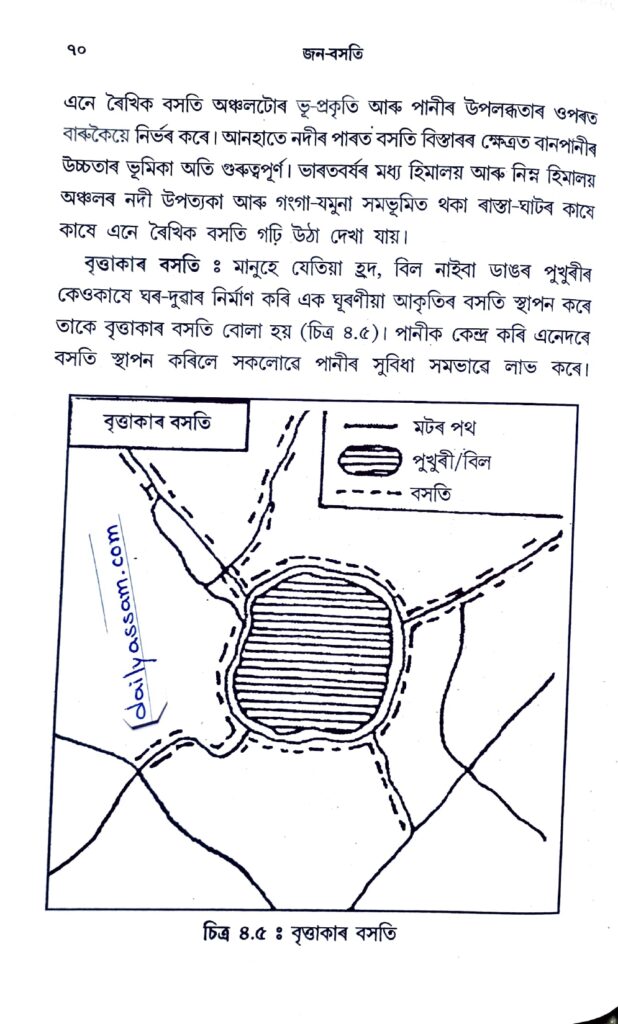 ৭০
জন-বসতি
এনে ৰৈখিক বসতি অঞ্চলটোৰ ভূ-প্ৰকৃতি আৰু পানীৰ উপলব্ধতাৰ ওপৰত
বাৰুকৈয়ে নিৰ্ভৰ কৰে। আনহাতে নদীৰ পাৰত বসতি বিস্তাৰৰ ক্ষেত্ৰত বানপানীৰ
উচ্চতাৰ ভূমিকা অতি গুৰুত্বপূৰ্ণ। ভাৰতবৰ্ষৰ মধ্য হিমালয় আৰু নিম্ন হিমালয়
অঞ্চলৰ নদী উপত্যকা আৰু গংগা-যমুনা সমভূমিত থকা ৰাস্তা-ঘাটৰ কাষে
কাষে এনে ৰৈখিক বসতি গঢ়ি উঠা দেখা যায়।
বৃত্তাকাৰ বসতি : মানুহে যেতিয়া হ্ৰদ, বিল নাইবা ডাঙৰ পুখুৰীৰ
কেওকাষে ঘৰ-দুৱাৰ নিৰ্মাণ কৰি এক ঘূৰণীয়া আকৃতিৰ বসতি স্থাপন কৰে
তাকে বৃত্তাকাৰ বসতি বোলা হয় (চিত্ৰ ৪.৫)। পানীক কেন্দ্ৰ কৰি এনেদৰে
বসতি স্থাপন কৰিলে সকলোৱে পানীৰ সুবিধা সমভাৱে লাভ কৰে।
বৃত্তাকাৰ বসতি
মটৰ পথ
পুখুৰী/বিল
বসতি
dailyassam.com
চিত্ৰ ৪.৫ : বৃত্তাকাৰ বসতি